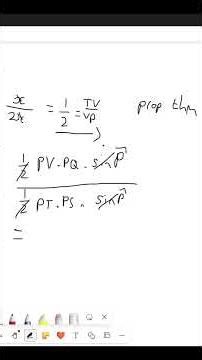 x/2x = 1/2 = TV/VP prop thm
1/2 PV.PQ. sin P̂
1/2 PT.PS. sin P̂
=